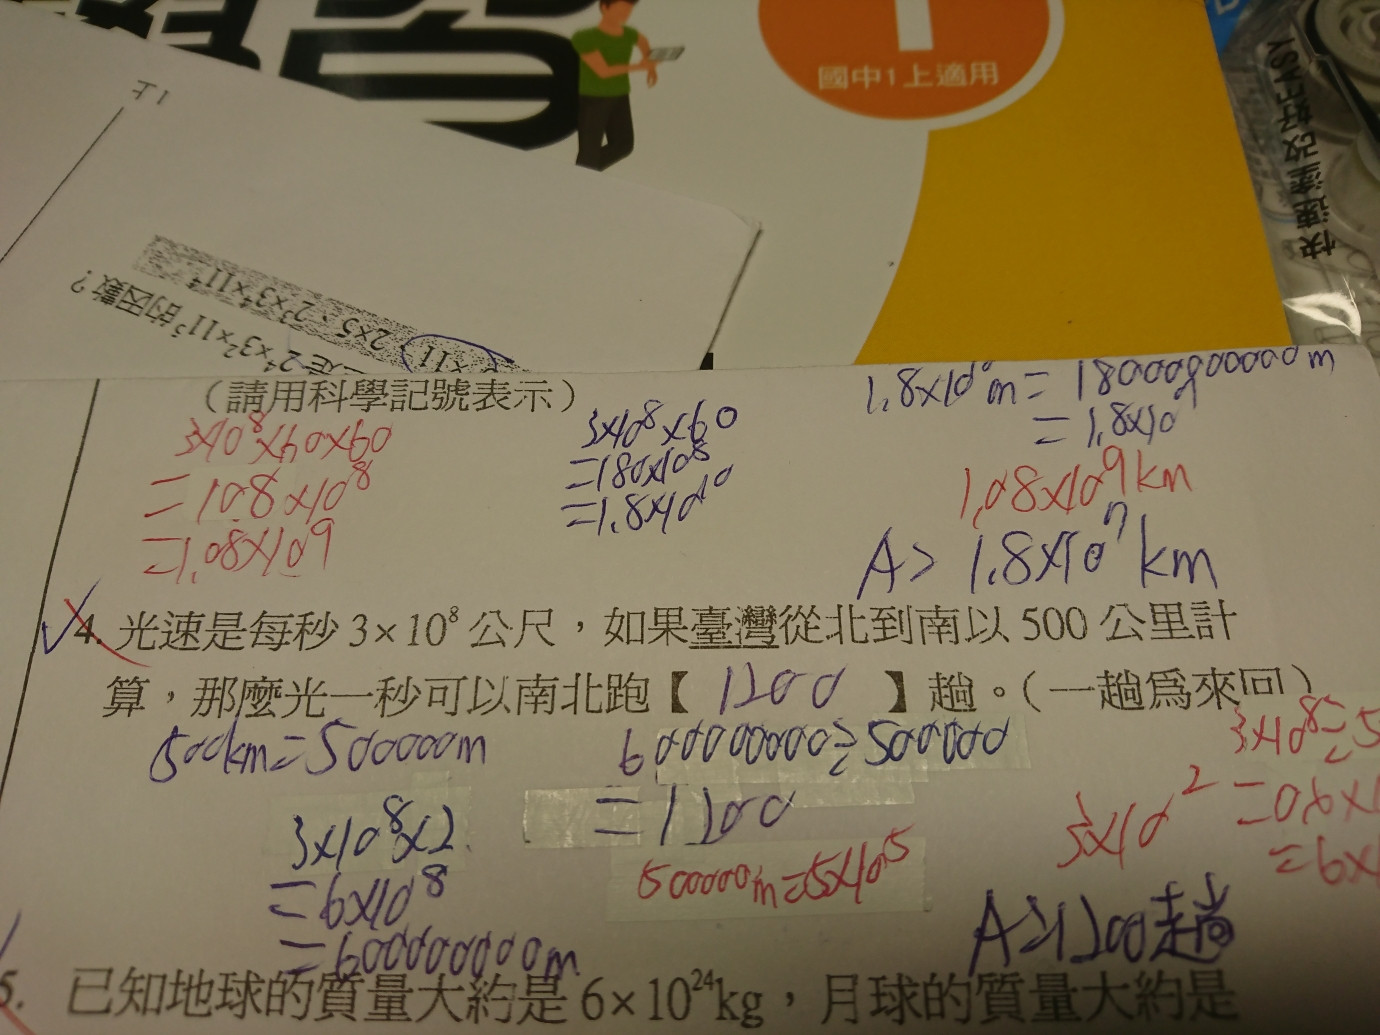 1
國中1上適用
快速塗改好EASY
1上
2×5、2³×3⁴×11⁴
是 2⁴×3²×11³ 的因數？
×11
（請用科學記號表示）
3×10⁸×60×60
=10.8×10⁸
=1.08×10⁹
3×10⁸×60
=180×10⁸
=1.8×10¹⁰
1.8×10¹⁰m=18000000000m
=1.8×10
1.08×10⁹km
A> 1.8×10⁷km
4. 光速是每秒 3×10⁸ 公尺，如果臺灣從北到南以 500 公里計
算，那麼光一秒可以南北跑【 1200 】趟。（一趟爲來回）
500km=500000m
3×10⁸×2
=6×10⁸
=600000000m
600000000÷500000
=1200
500000m=5×10⁵
3×10⁸÷5
=0.6×1
=6×1
3×10²
A>1200趟
5. 已知地球的質量大約是 6×10²⁴kg，月球的質量大約是